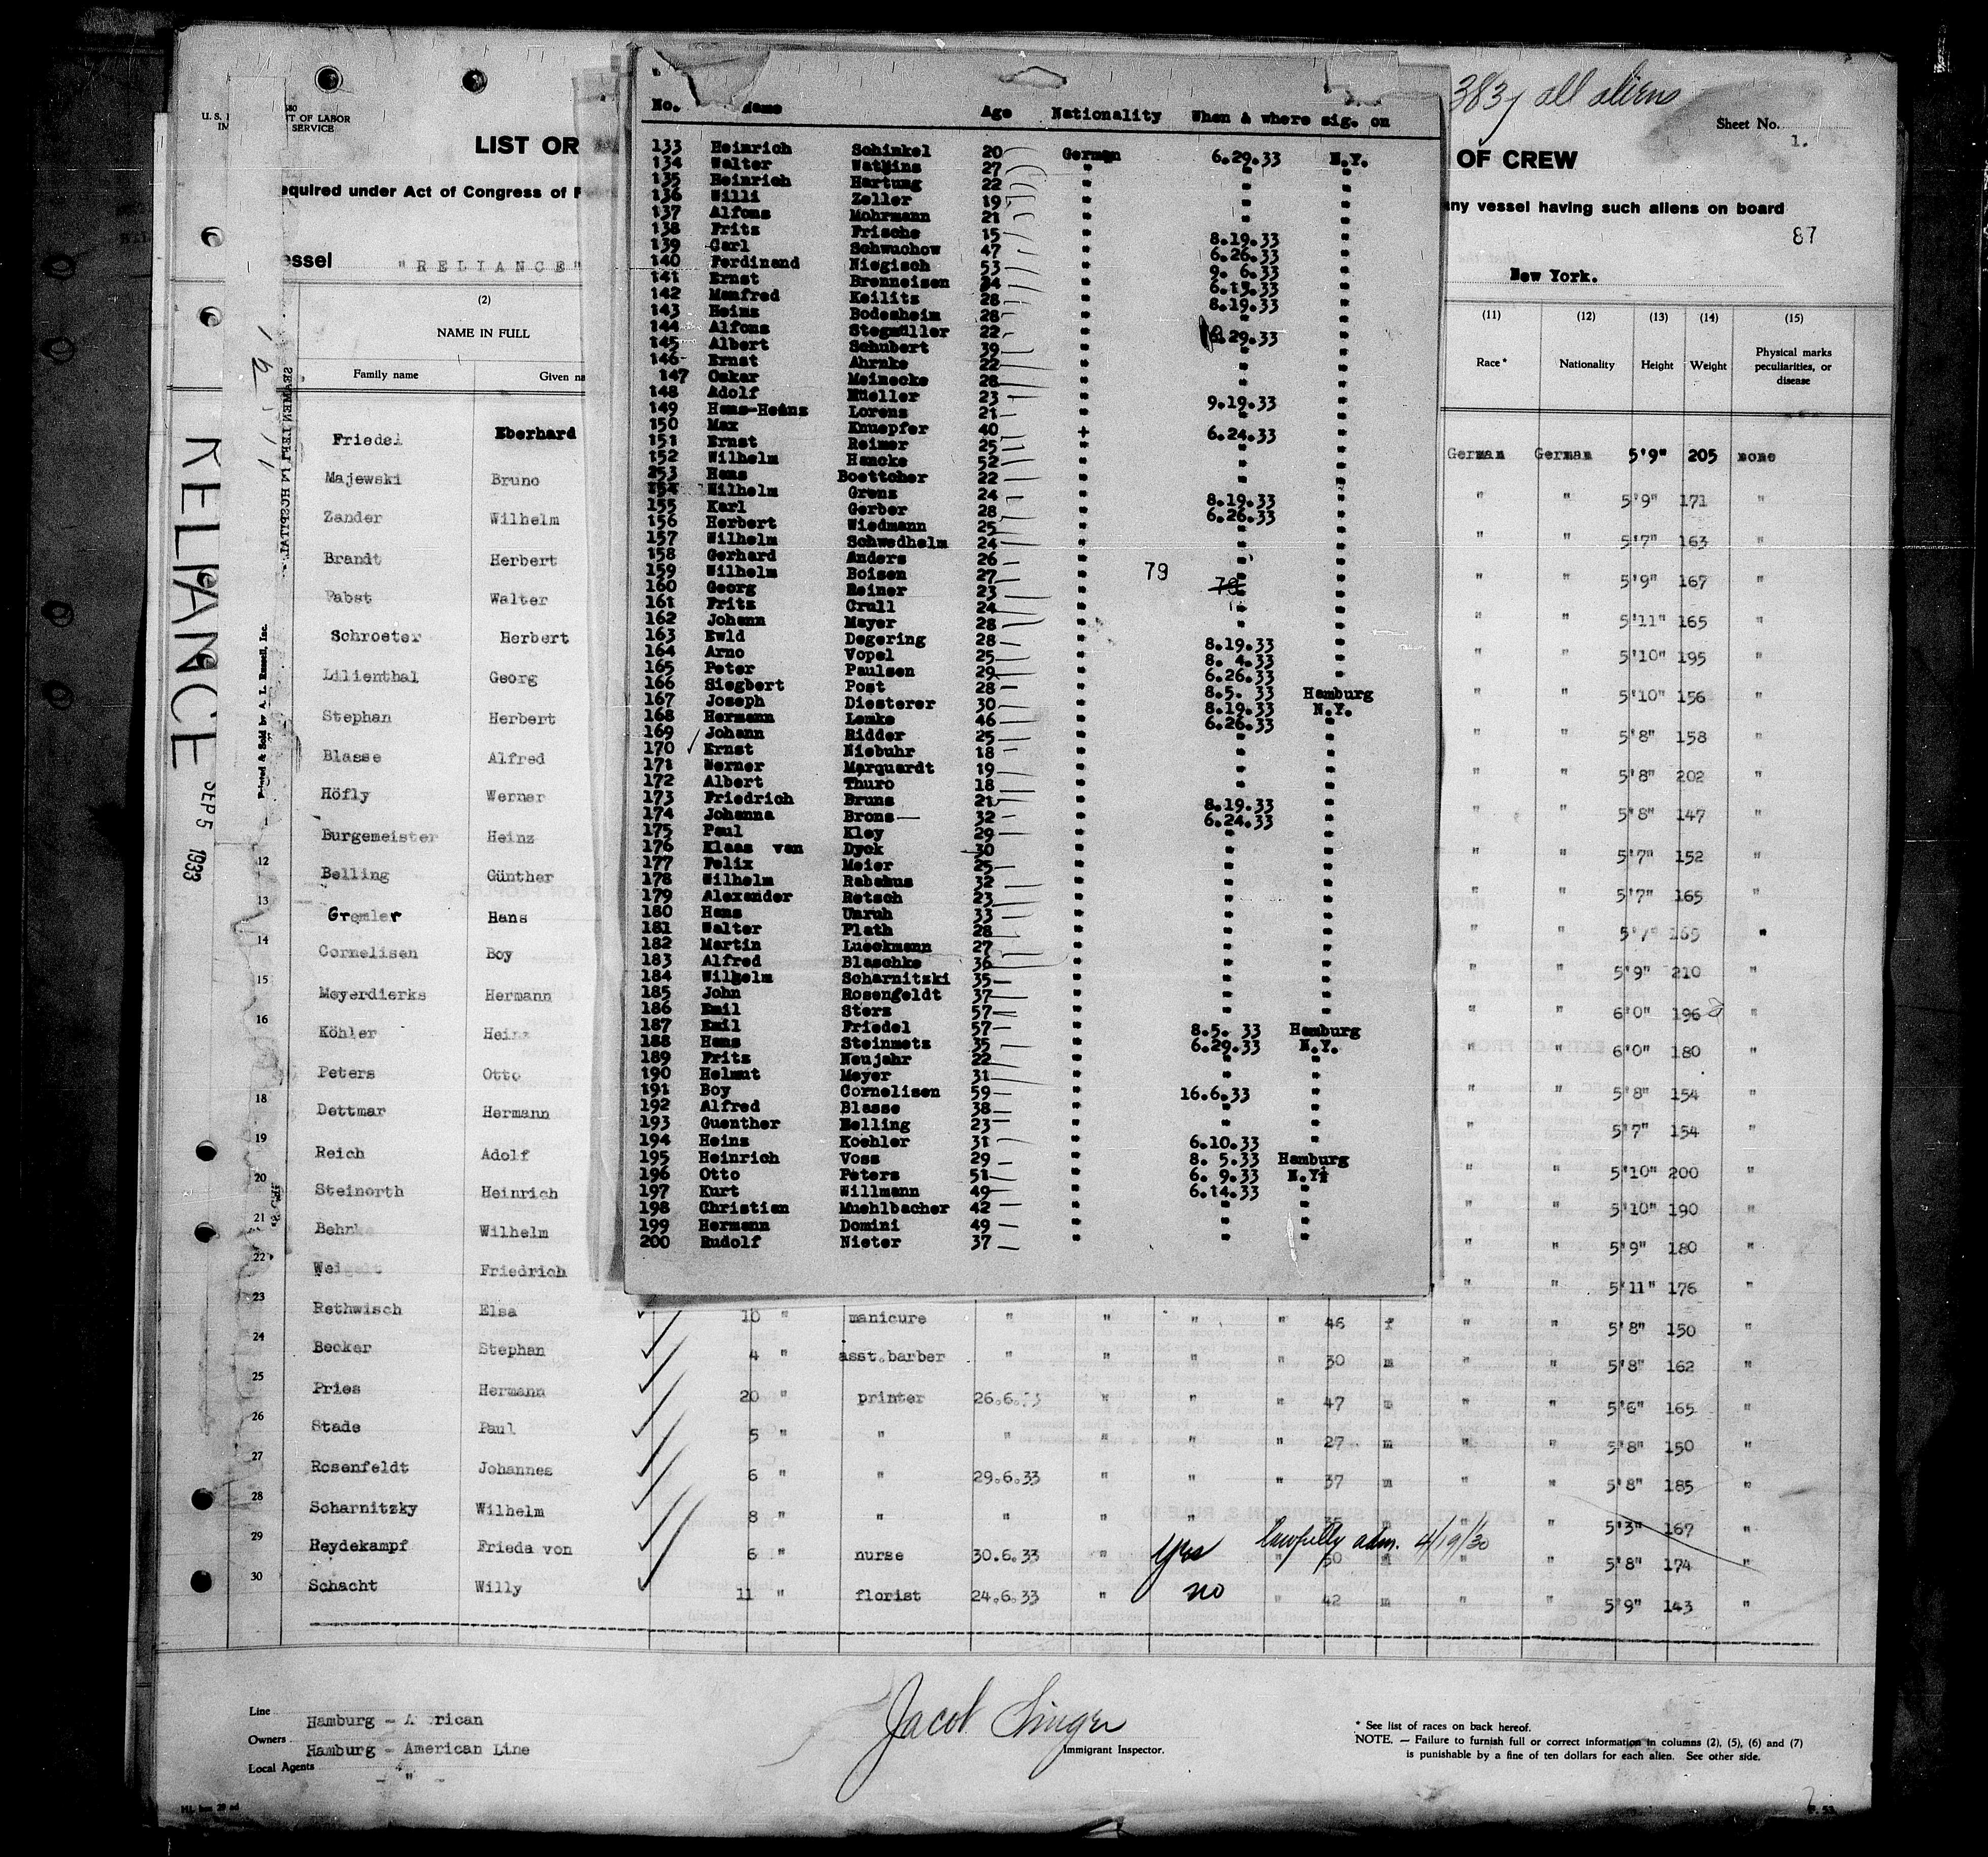 383 all aliens
Sheet No. 1.
LIST OR
OF CREW
equired under Act of Congress of F
any vessel having such aliens on board
87
essel "RELIANCE"
New York.
(2)
NAME IN FULL
Family name Given na
(11) (12) (13) (14) (15)
Race* Nationality Height Weight Physical marks peculiarities, or disease
RELIANCE
SEP 5 1933
SEAMEN LEFT IN HOSPITAL
Printed & Sold by A. L. Russell, Inc.
No. Name Age Nationality When & where sig. on
133 Heinrich Schinkel 20 German 6.29.33 N.Y.
134 Walter Watkins 27 " " "
135 Heinrich Hartung 22 " " "
136 Willi Zeller 19 " " "
137 Alfons Mohrmann 21 " " "
138 Fritz Frische 15 " 8.19.33 "
139 Carl Schwuchow 47 " 6.26.33 "
140 Ferdinand Niegisch 53 " 9. 6.33 "
141 Ernst Brenneisen 34 " 6.15.33 "
142 Manfred Keilitz 28 " 8.19.33 "
143 Heinz Bodenheim 28 " " "
144 Alfons Stegmüller 22 " 6.29.33 "
145 Albert Schubert 39 " " "
146 Ernst Ahrnke 22 " " "
147 Oskar Meinecke 28 " " "
148 Adolf Mueller 23 " 9.19.33 "
149 Hans-Heinz Lorenz 21 " " "
150 Max Knuepfer 40 + 6.24.33 "
151 Ernst Reimer 25 " " "
152 Wilhelm Hancke 52 " " "
153 Hans Boettcher 22 " " "
154 Wilhelm Grenz 24 " 8.19.33 "
155 Karl Gerber 28 " 6.26.33 "
156 Herbert Wiedmann 25 " " "
157 Wilhelm Schwedhelm 24 " " "
158 Gerhard Anders 26 " " "
159 Wilhelm Boisen 27 " 79 " "
160 Georg Reiner 23 " 79 "
161 Fritz Crull 24 " " "
162 Johann Mayer 28 " " "
163 Ewld Degering 28 " 8.19.33 "
164 Arno Vopel 25 " 8. 4.33 "
165 Peter Paulsen 29 " 6.26.33 "
166 Siegbert Post 28 " 8.5. 33 Hamburg
167 Joseph Diesterer 30 " 8.19.33 N.Y.
168 Hermann Lemke 46 " 6.26.33 "
169 Johann Ridder 25 " " "
170 Ernst Niebuhr 18 " " "
171 Werner Marquardt 19 " " "
172 Albert Thuro 18 " " "
173 Friedrich Bruns 21 " 8.19.33 "
174 Johanna Brons 32 " 6.24.33 "
175 Paul Kley 29 " " "
176 Klaas van Dyck 30 " " "
177 Felix Meier 25 " " "
178 Wilhelm Rabehus 32 " " "
179 Alexander Retsch 23 " " "
180 Hans Unruh 33 " " "
181 Walter Plath 28 " " "
182 Martin Lueckmann 27 " " "
183 Alfred Blaschke 36 " " "
184 Wilhelm Scharnitzki 35 " " "
185 John Rosengeldt 37 " " "
186 Emil Sterz 57 " " "
187 Emil Friedel 57 " 8.5. 33 Hamburg
188 Hans Steinmetz 35 " 6.29.33 N.Y.
189 Fritz Neujahr 22 " " "
190 Helmut Meyer 31 " " "
191 Boy Cornelisen 59 " 16.6.33 "
192 Alfred Blasse 38 " " "
193 Guenther Belling 23 " " "
194 Heinz Koehler 31 " 6.10.33 "
195 Heinrich Voss 29 " 8. 5.33 Hamburg
196 Otto Peters 51 " 6. 9.33 N.Y.
197 Kurt Willmann 49 " 6.14.33 "
198 Christian Muehlbacher 42 " " "
199 Hermann Domini 49 " " "
200 Rudolf Nieter 37 " " "
Friedel Eberhard German German 5'9" 205 none
Majewski Bruno " " 5'9" 171 "
Zander Wilhelm " " 5'7" 163 "
Brandt Herbert " " 5'9" 167 "
Pabst Walter " " 5'11" 165 "
Schroeter Herbert " " 5'10" 195 "
Lilienthal Georg " " 5'10" 156 "
Stephan Herbert " " 5'8" 158 "
Blasse Alfred " " 5'8" 202 "
Höfly Werner " " 5'8" 147 "
Burgemeister Heinz " " 5'7" 152 "
12 Belling Günther " " 5'7" 165 "
13 Gremler Hans " " 5'7" 165 "
14 Cornelisen Boy " " 5'9" 210 "
15 Meyerdierks Hermann " " 6'0" 196 "
16 Köhler Heinz " " 6'0" 180 "
Peters Otto " " 5'8" 154 "
18 Dettmar Hermann " " 5'7" 154 "
19 Reich Adolf " " 5'10" 200 "
20 Steinorth Heinrich " " 5'10" 190 "
21 Behnke Wilhelm " " 5'9" 180 "
22 Weigelt Friedrich " " 5'11" 176 "
23 Rethwisch Elsa 10 " manicure " " " " 46 f " " 5'8" 150 "
24 Becker Stephan 4 " asst.barber " " " " 30 m " " 5'8" 162 "
25 Pries Hermann 20 " printer 26.6.33 " " " 47 m " " 5'6" 165 "
26 Stade Paul 5 " " " " " " 27 m " " 5'8" 150 "
27 Rosenfeldt Johannes 6 " " 29.6.33 " " " 37 m " " 5'8" 185 "
28 Scharnitzky Wilhelm 8 " " " " " " 35 m " " 5'3" 167 "
29 Heydekampf Frieda von 6 " nurse 30.6.33 " yes lawfully adm. 4/19/30 50 f 5'8" 174 "
30 Schacht Willy 11 " florist 24.6.33 " no " 42 m " " 5'9" 143 "
Line Hamburg - American
Owners Hamburg - American Line
Local Agents - " -
Jacob Singer
Immigrant Inspector.
* See list of races on back hereof.
NOTE. — Failure to furnish full or correct information in columns (2), (5), (6) and (7)
is punishable by a fine of ten dollars for each alien. See other side.